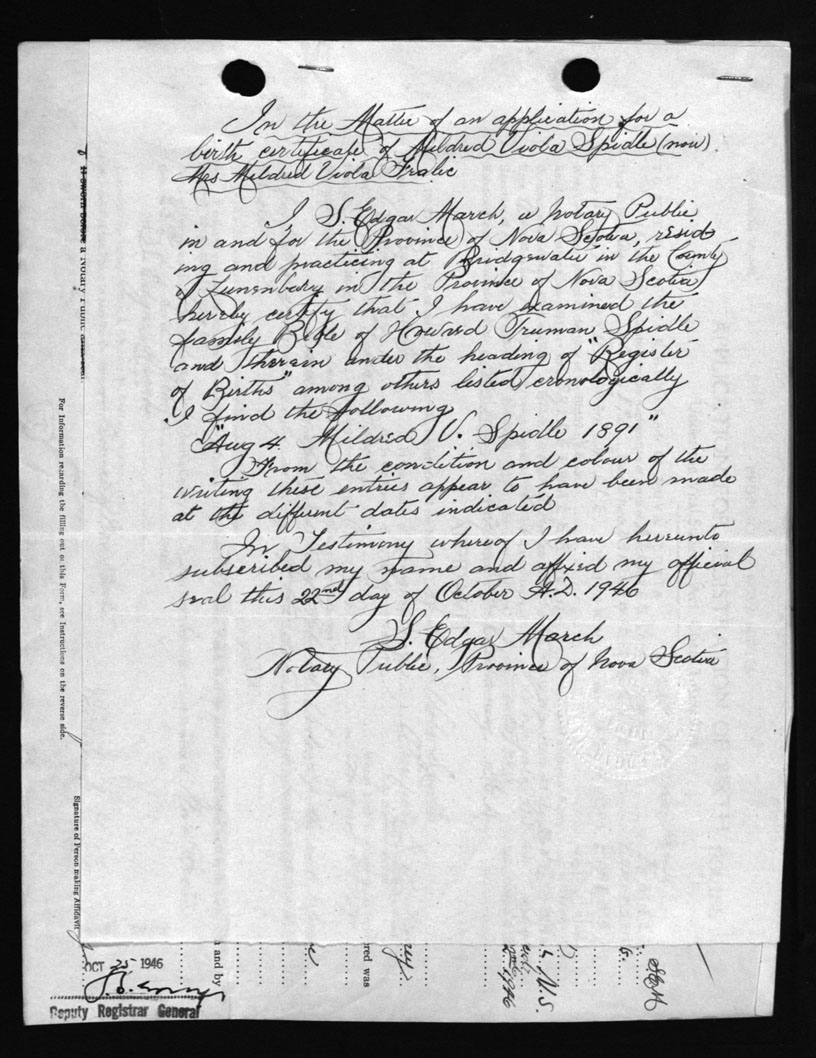 In the Matter of an application for a
birth certificate of Mildred Viola Spidle (now)
Mrs Mildred Viola Fralic
I S. Edgar March, a Notary Public
in and for the Province of Nova Scotia, resid
ing and practicing at Bridgewater in the County
of Lunenburg in the Province of Nova Scotia
hereby certify that I have examined the
family Bible of Howard Truman Spidle
and therein under the heading of "Register
of Births" among others listed cronologically
I find the following
"Aug 4. Mildred V. Spidle 1891"
From the condition and colour of the
writing these entries appear to have been made
at the different dates indicated
In Testimony whereof I have hereunto
subscribed my name and affixed my official
seal this 22nd day of October A.D. 1946
S. Edgar March
Notary Public, Province of Nova Scotia
a Notary Public
For Information regarding the filling out of this Form, see Instructions on the reverse side.
Signature of Person making Affidavit
OCT 25 1946
Deputy Registrar General
h and by
ered was
N.S.
1946